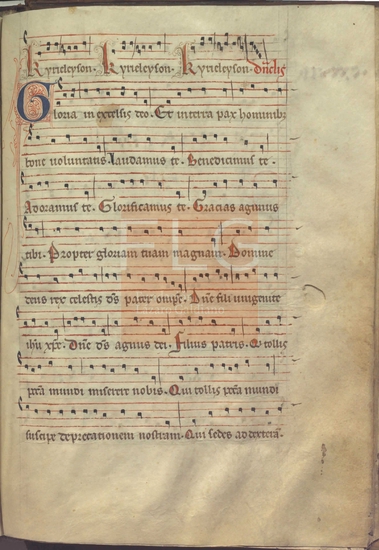 Kyrieleyson. Kyrieleyson. Kyrieleyson. dñicis
Gloria in excelsis deo. Et in terra pax hominibꝫ
bone voluntatis. laudamus te. Benedicimus te.
Adoramus te. Glorificamus te. Gracias agimus
tibi. Propter gloriam tuam magnam. Domine
deus rex celestis ds pater omīps. Dñe fili unigenite
ihu xpe. Dñe ds agnus dei. Filius patris. Qi tollis
pctā mundi miserere nobis. Qui tollis pctā mundi
suscipe deprecationem nostram. Qui sedes ad dexterā.